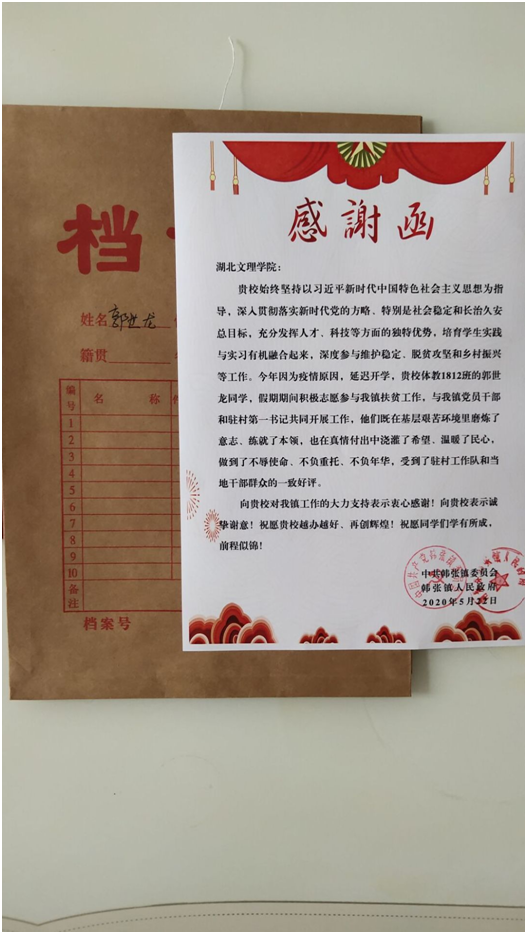 档
姓名 郭世龙
籍贯
编号 名 称 件
1
2
3
4
5
6
7
8
9
10
备注
档案号
感謝函
湖北文理学院：
贵校始终坚持以习近平新时代中国特色社会主义思想为指
导，深入贯彻落实新时代党的方略、特别是社会稳定和长治久安
总目标，充分发挥人才、科技等方面的独特优势，培育学生实践
与实习有机融合起来，深度参与维护稳定、脱贫攻坚和乡村振兴
等工作。今年因为疫情原因，延迟开学，贵校体教1812班的郭世
龙同学，假期期间积极志愿参与我镇扶贫工作，与我镇党员干部
和驻村第一书记共同开展工作，他们既在基层艰苦环境里磨炼了
意志、练就了本领，也在真情付出中浇灌了希望、温暖了民心，
做到了不辱使命、不负重托、不负年华，受到了驻村工作队和当
地干部群众的一致好评。
向贵校对我镇工作的大力支持表示衷心感谢！向贵校表示诚
挚谢意！祝愿贵校越办越好、再创辉煌！祝愿同学们学有所成，
前程似锦！
中共韩张镇委员会
韩张镇人民政府
2020年5月22日